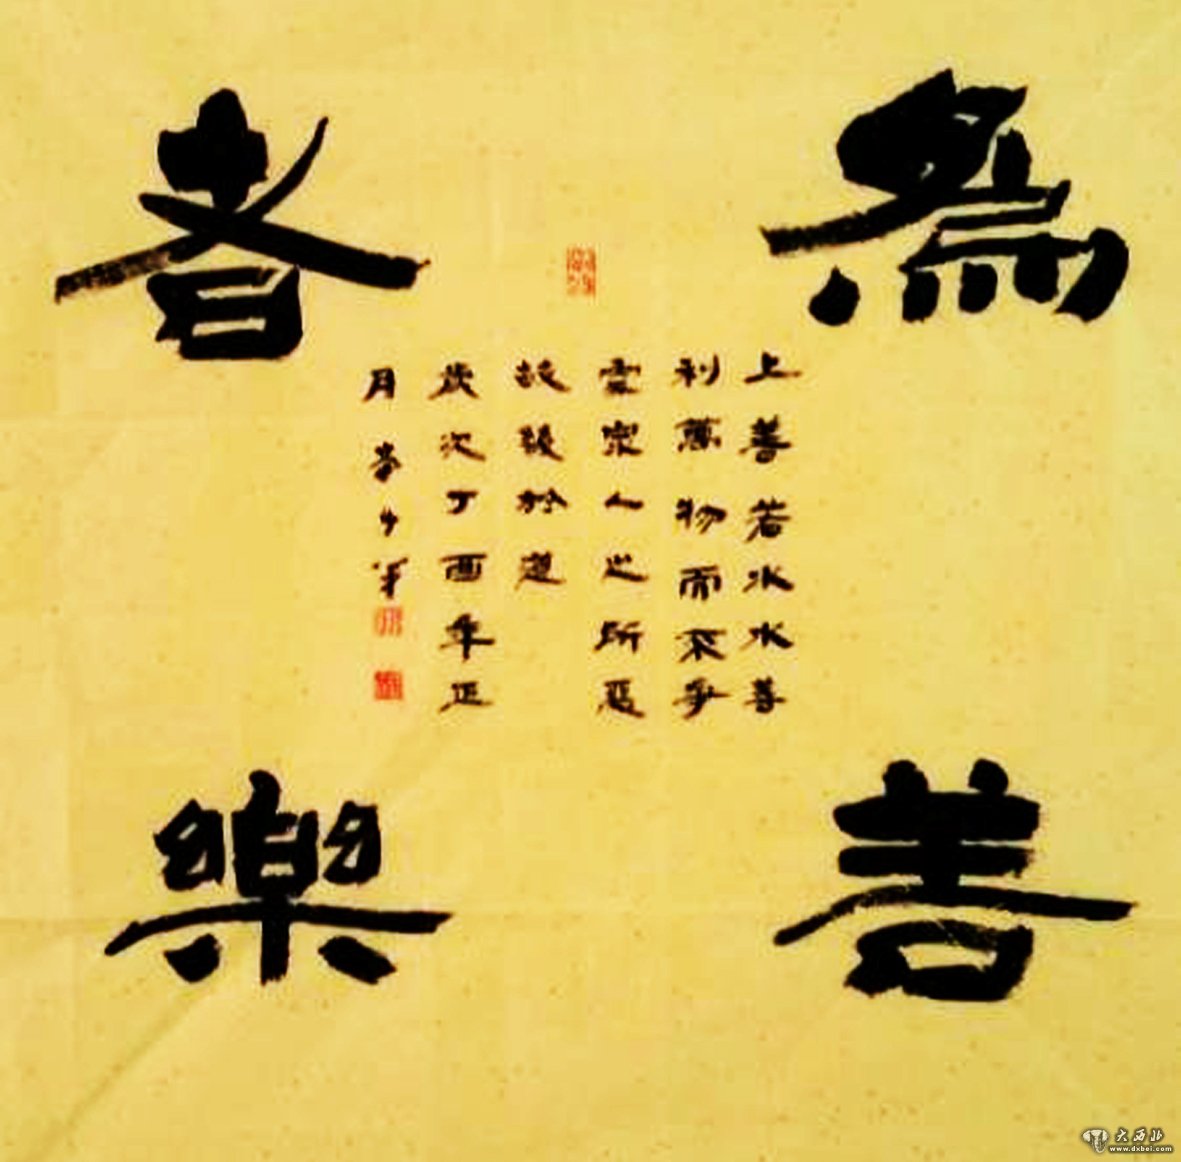 為善
者樂
上善若水水善
利萬物而不爭
處衆人之所惡
故幾於道
歲次丁酉年正
月
大西北
www.dxbei.com